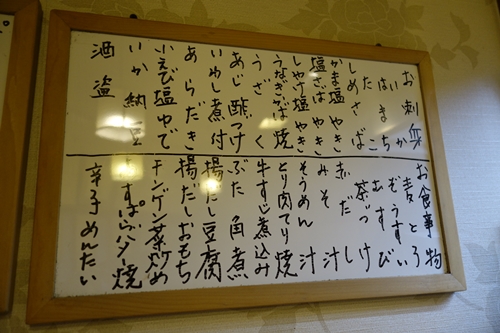 お刺身
いか
はまち
たこ
しめさば
かま塩やき
塩さばやき
しゃけ塩やき
うなぎかば焼
うざく
あじ酢づけ
いわし煮付
あらだき
小えび塩ゆで
いか納豆
酒盗
お食事物
麦とろ
ぞうすい
おむすび
茶づけ
赤だし
みそ汁
そうめん
とり肉てり焼
牛すじ煮込み
ぶた角煮
揚だし豆腐
揚だしおもち
チンゲン菜炒め
あすぱらバター焼
辛子めんたい